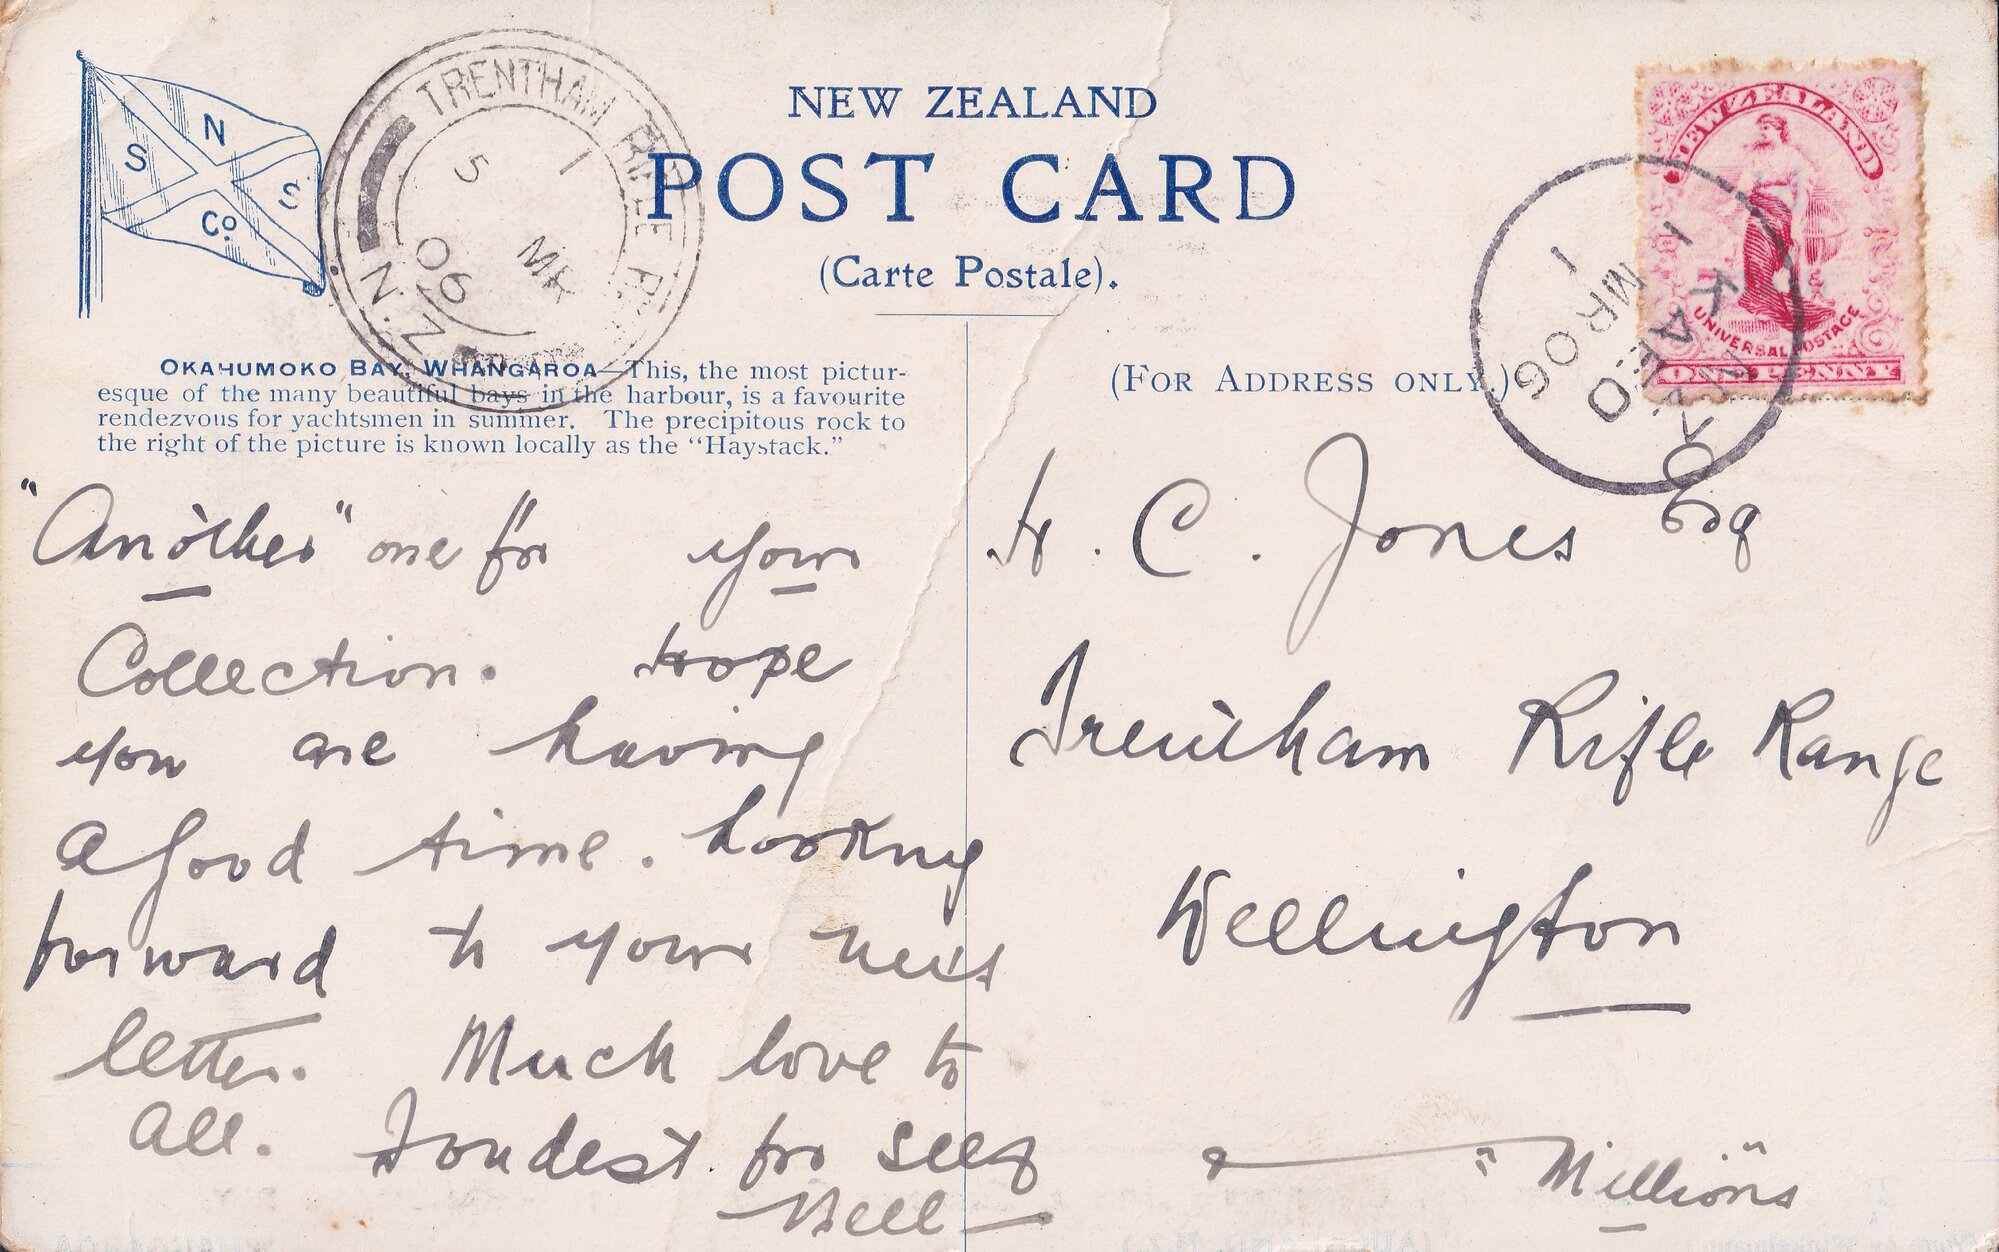 N
S S
Co.
TRENTHAM RIFLE R
1
5 MR
06
N.Z
NEW ZEALAND
POST CARD
(Carte Postale).
NEW ZEALAND
UNIVERSAL POSTAGE
ONE PENNY
1
1 MR 06
OKAHUMOKO BAY, WHANGAROA—This, the most pictur-
esque of the many beautiful bays in the harbour, is a favourite
rendezvous for yachtsmen in summer. The precipitous rock to
the right of the picture is known locally as the "Haystack."
(FOR ADDRESS ONLY.)
"Another" one for your
Collection. Hope
you are having
a good time. Looking
forward to your next
letter. Much love to
all. Fondest for self
Nell
H. C. Jones Esq
Trentham Rifle Range
Wellington
"Millions"